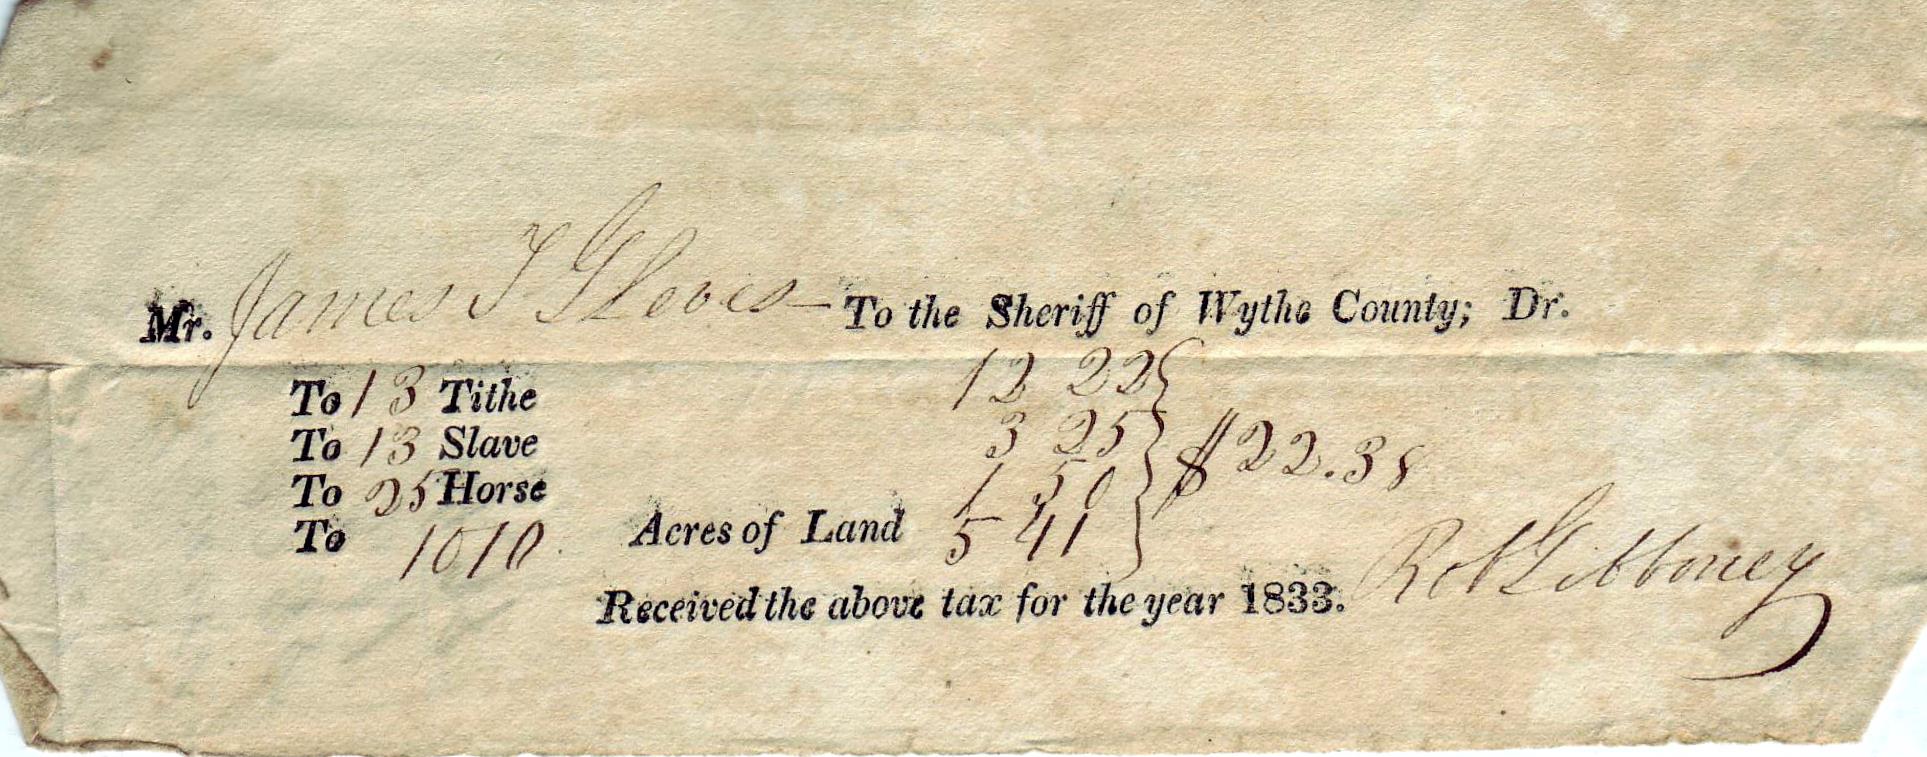 Mr. James T Gleves To the Sheriff of Wythe County; Dr.
To 13 Tithe 12 22
To 13 Slave 3 25
To 25 Horse 1 50 $22.38
To 1010 Acres of Land 5 41
Received the above tax for the year 1833. Rob Gibboney